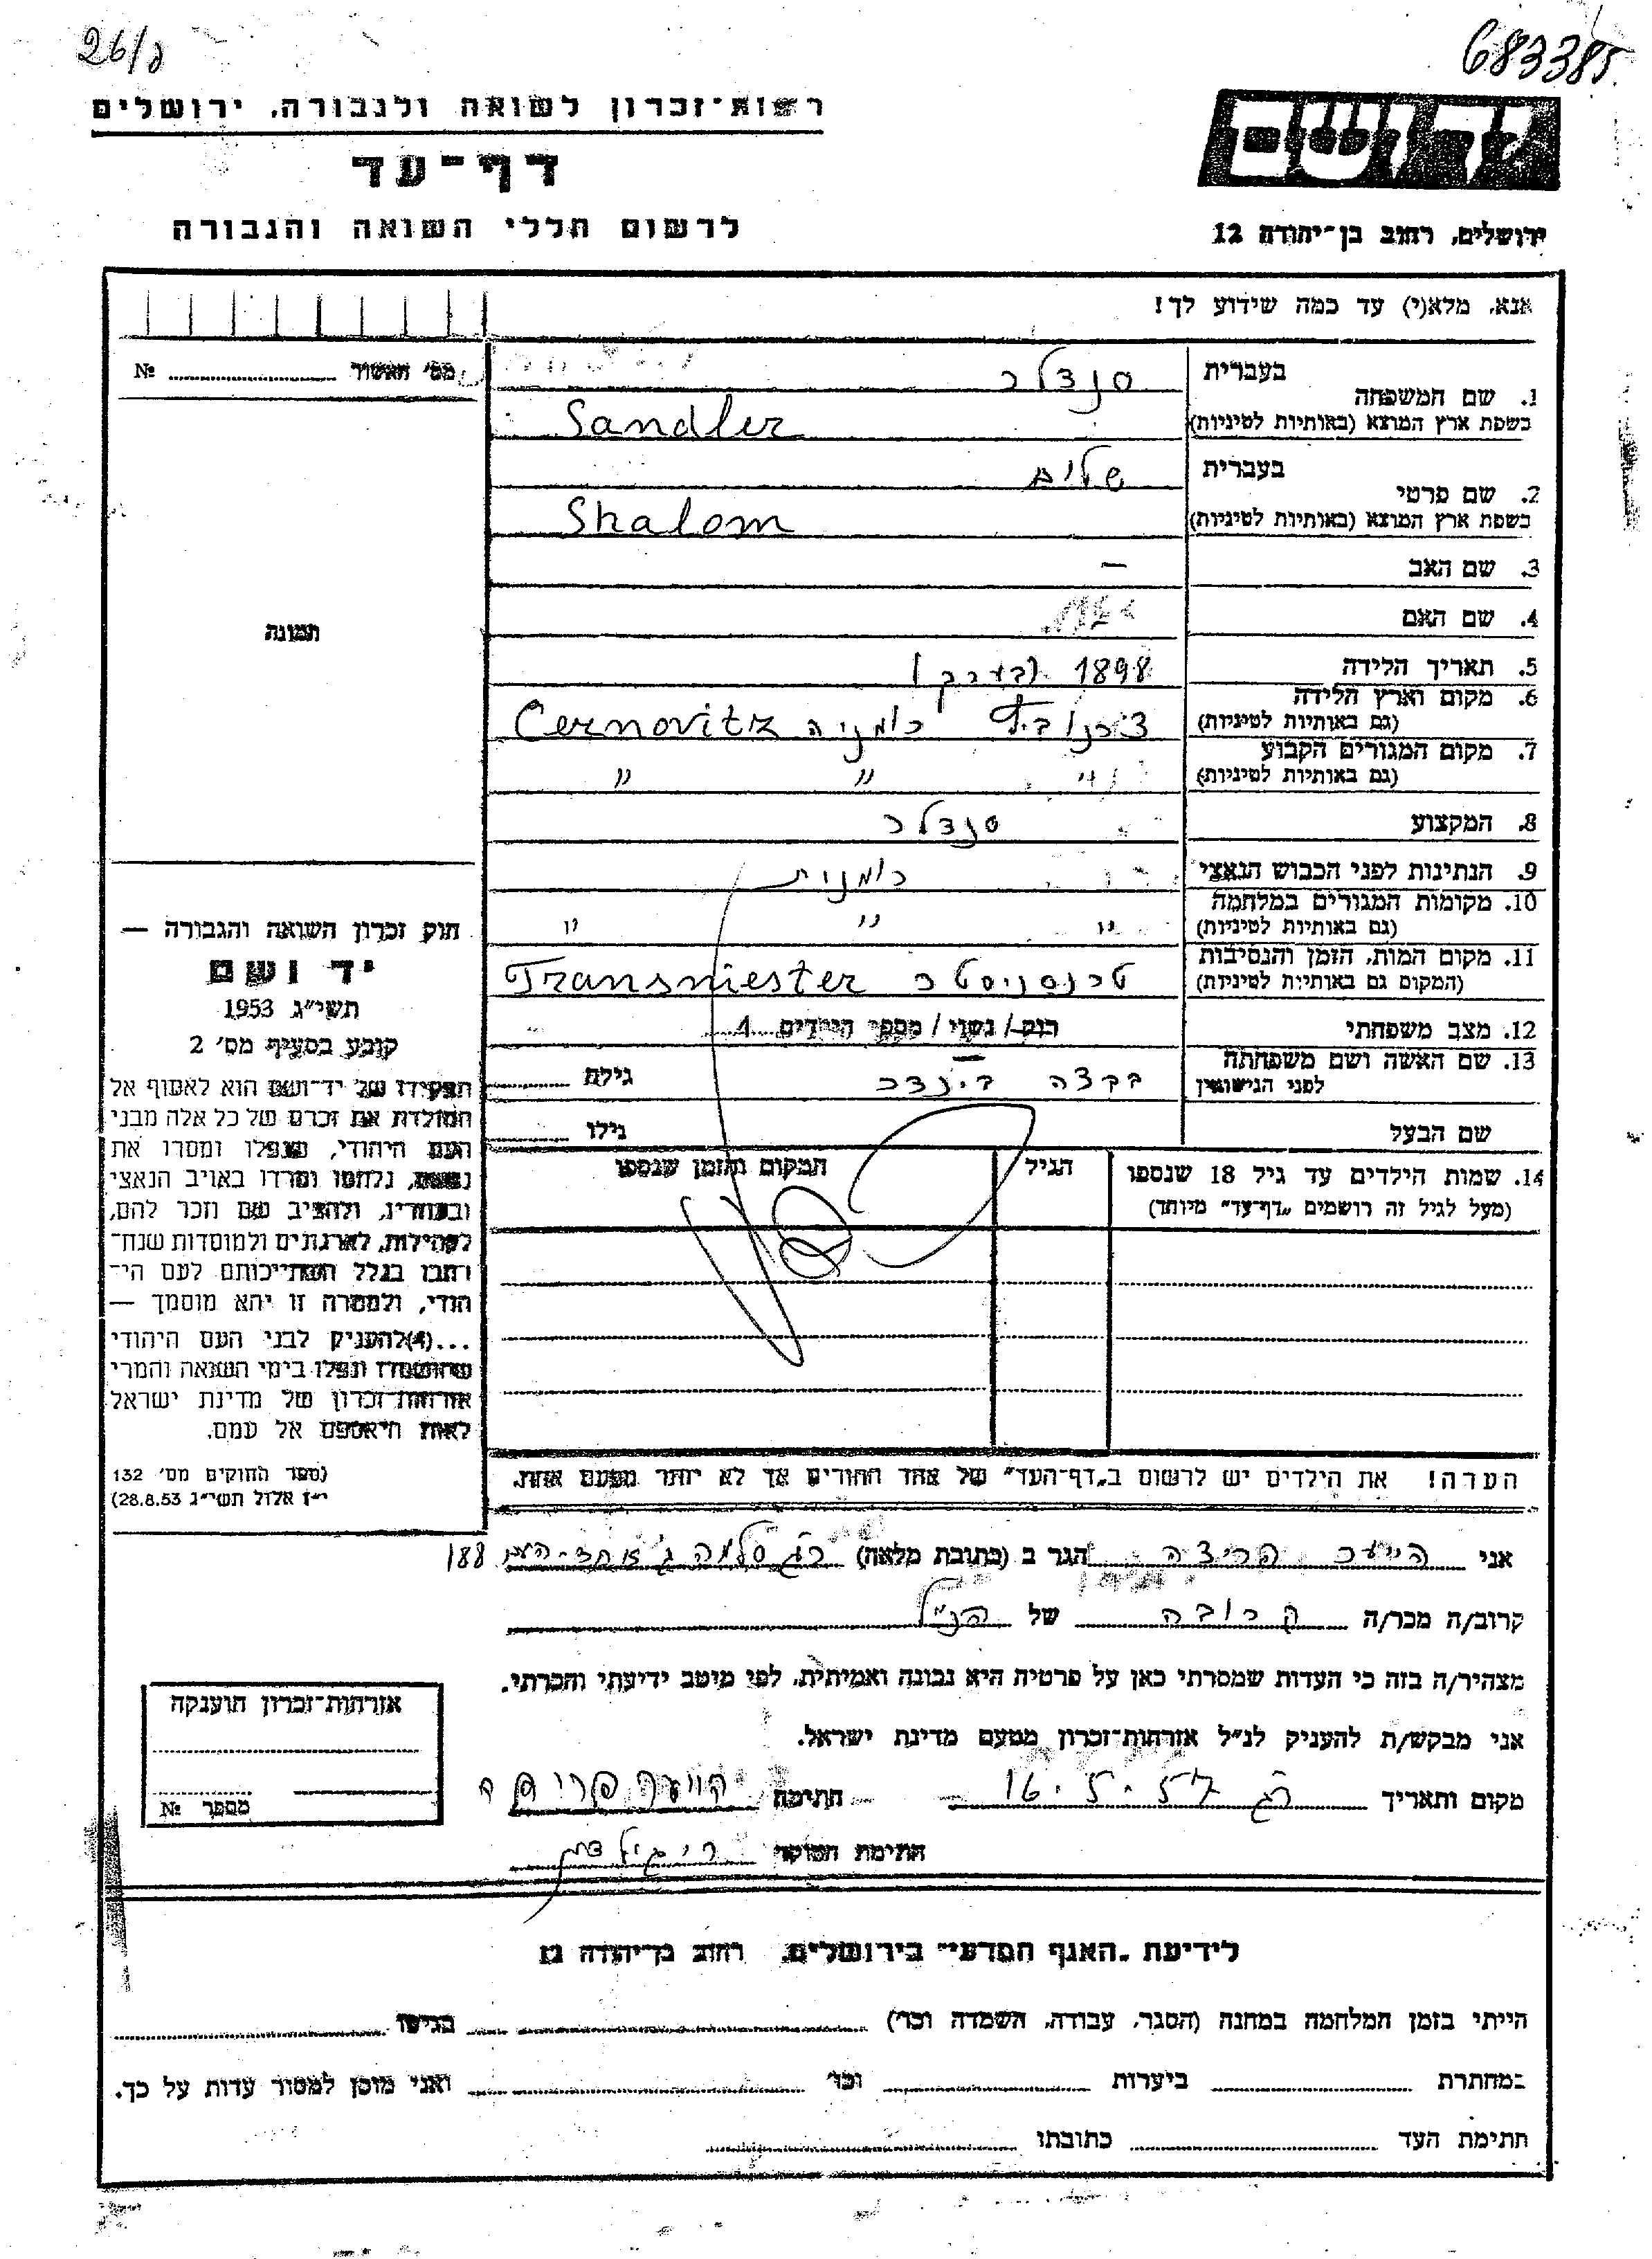 26/8
683385
רשות־זכרון לשואה ולגבורה, ירושלים
דף־עד
לרשום חללי השואה והגבורה
יד ושם
ירושלים, רחוב בן־יהודה 12
אנא, מלא(י) עד כמה שידוע לך!
מס׳ האשור № 
תמונה
1. שם המשפחה
בעברית סנדלר
בשפת ארץ המוצא (באותיות לטיניות) Sandler
2. שם פרטי
בעברית שלום
בשפת ארץ המוצא (באותיות לטיניות) Shalom
3. שם האב —
4. שם האם
5. תאריך הלידה 1898 (בערך)
6. מקום וארץ הלידה
(גם באותיות לטיניות) רומניה Cernovitz
7. מקום המגורים הקבוע
(גם באותיות לטיניות) " " "
8. המקצוע סנדלר
9. הנתינות לפני הכבוש הנאצי רומנית
10. מקומות המגורים במלחמה
(גם באותיות לטיניות) " " "
11. מקום המות, הזמן והנסיבות
(המקום גם באותיות לטיניות) טרנסניסטר Transniester
12. מצב משפחתי רווק/ נשוי/ מספר הילדים 1
13. שם האשה ושם משפחתה
לפני הנישואין גילה
שם הבעל גילו
14. שמות הילדים עד גיל 18 שנספו
(מעל לגיל זה רושמים „דף־עד" מיוחד)
הגיל
המקום והזמן שנספו
חוק זכרון השואה והגבורה —
יד ושם
תשי״ג 1953
קובע בסעיף מס׳ 2
תפקידו של יד־ושם הוא לאסוף אל
המולדת את זכרם של כל אלה מבני
העם היהודי, שנפלו ומסרו את
נפשם, נלחמו ומרדו באויב הנאצי
ובעוזריו, ולהציב שם וזכר להם,
לקהילות, לארגונים ולמוסדות שנח־
רבו בגלל השתייכותם לעם הי־
הודי, ולמטרה זו יהא מוסמך —
...(4) להעניק לבני העם היהודי
שהושמדו ונפלו בימי השואה והמרי
אזרחות־זכרון של מדינת ישראל
לאות היאספם אל עמם.
(ספר החוקים מס׳ 132
י״ז אלול תשי״ג 28.8.53)
הערה! את הילדים יש לרשום ב„דף־העד" של אחד ההורים אך לא יותר מפעם אחת.
אני הגר ב (כתובת מלאה) 188
קרוב/ה מכר/ה קרובה של הנ״ל
מצהיר/ה בזה כי העדות שמסרתי כאן על פרטיה היא נכונה ואמיתית, לפי מיטב ידיעתי והכרתי.
אני מבקש/ת להעניק לנ״ל אזרחות־זכרון מטעם מדינת ישראל.
מקום ותאריך רג 16.5.57 חתימה
חתימת הפוקד
אזרחות־זכרון הוענקה
מספר №
לידיעת „האגף המדעי" בירושלים, רחוב בן־יהודה 12
הייתי בזמן המלחמה במחנה (הסגר, עבודה, השמדה וכו׳) בגיטו
במחתרת ביערות וכו׳ ואני מוכן למסור עדות על כך.
חתימת העד כתובתו